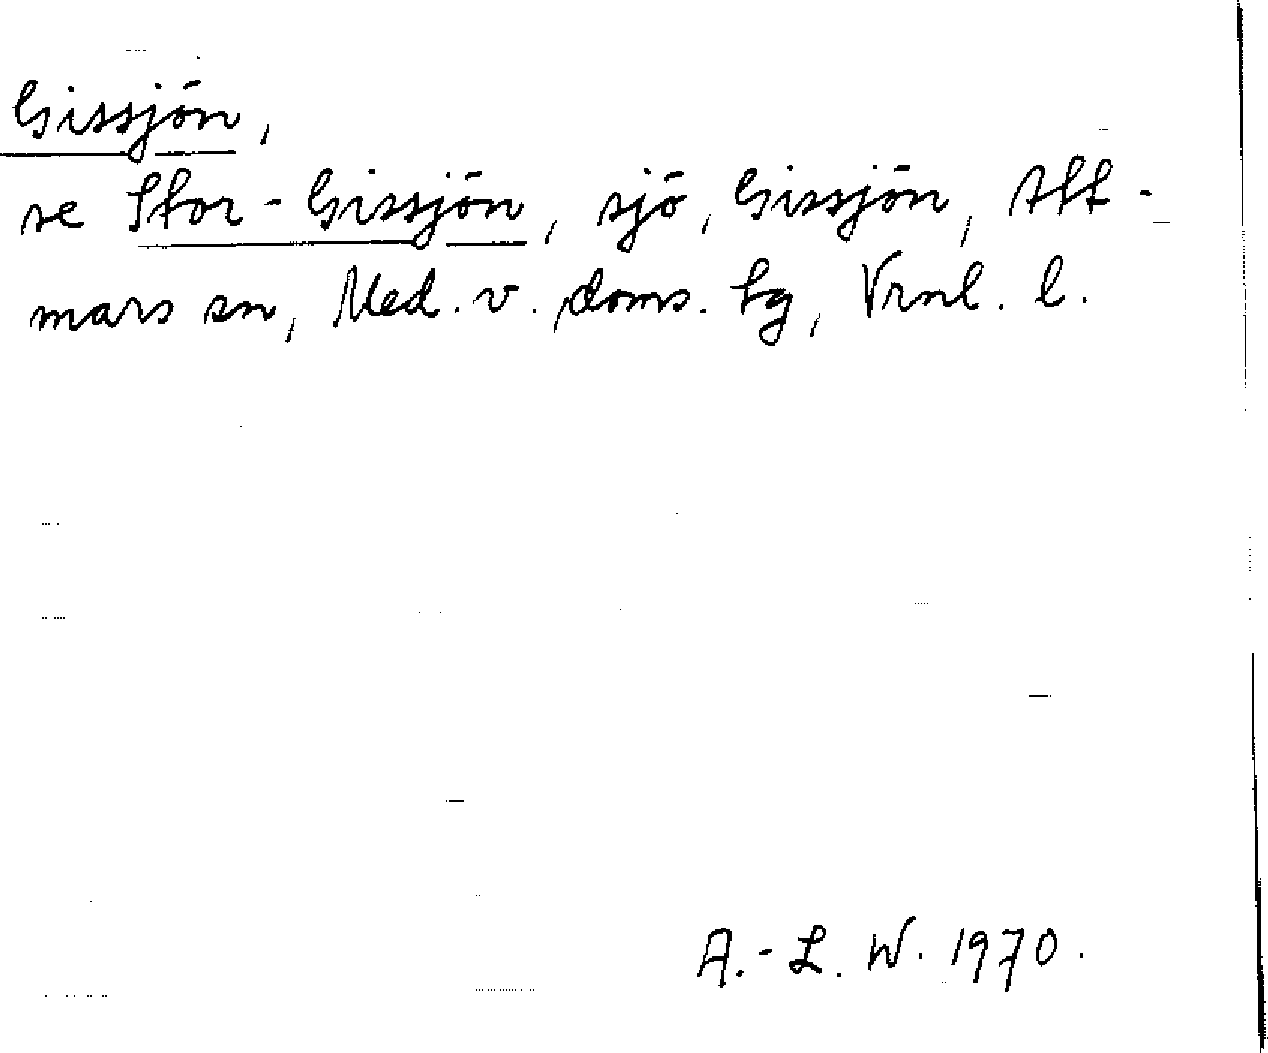 Gissjön,
se Stor-Gissjön, sjö, Gissjön, Att-
mars sn, Med. v. doms. tg, Vrnl. l.
A.-L. W. 1970.